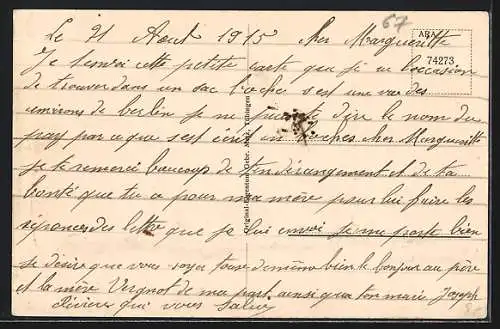 Le 21 Aout 1915 Cher Margueritte
67
ARA
74273
Je tenvoi cette petite carte que j'ai eu l'occasion
de trouver dans un sac boches s'est une vue des
environs de berlin je ne peut te dire le nom du
pays par ce que s'est écrit en boches cher Margueritte
je te remerci beaucoup de ton dérangement et de ta
bonté que tu a pour ma mère pour lui faire les
réponces des lettre que je lui envoi je me porte bien
je désire que vous soyer tous de même bien le bonjour au père
et la mère Vergnot de ma part ainsi que ton marie Joseph
qui vous Saluez
Original-Eigentum Gebr. Metz, Tübingen